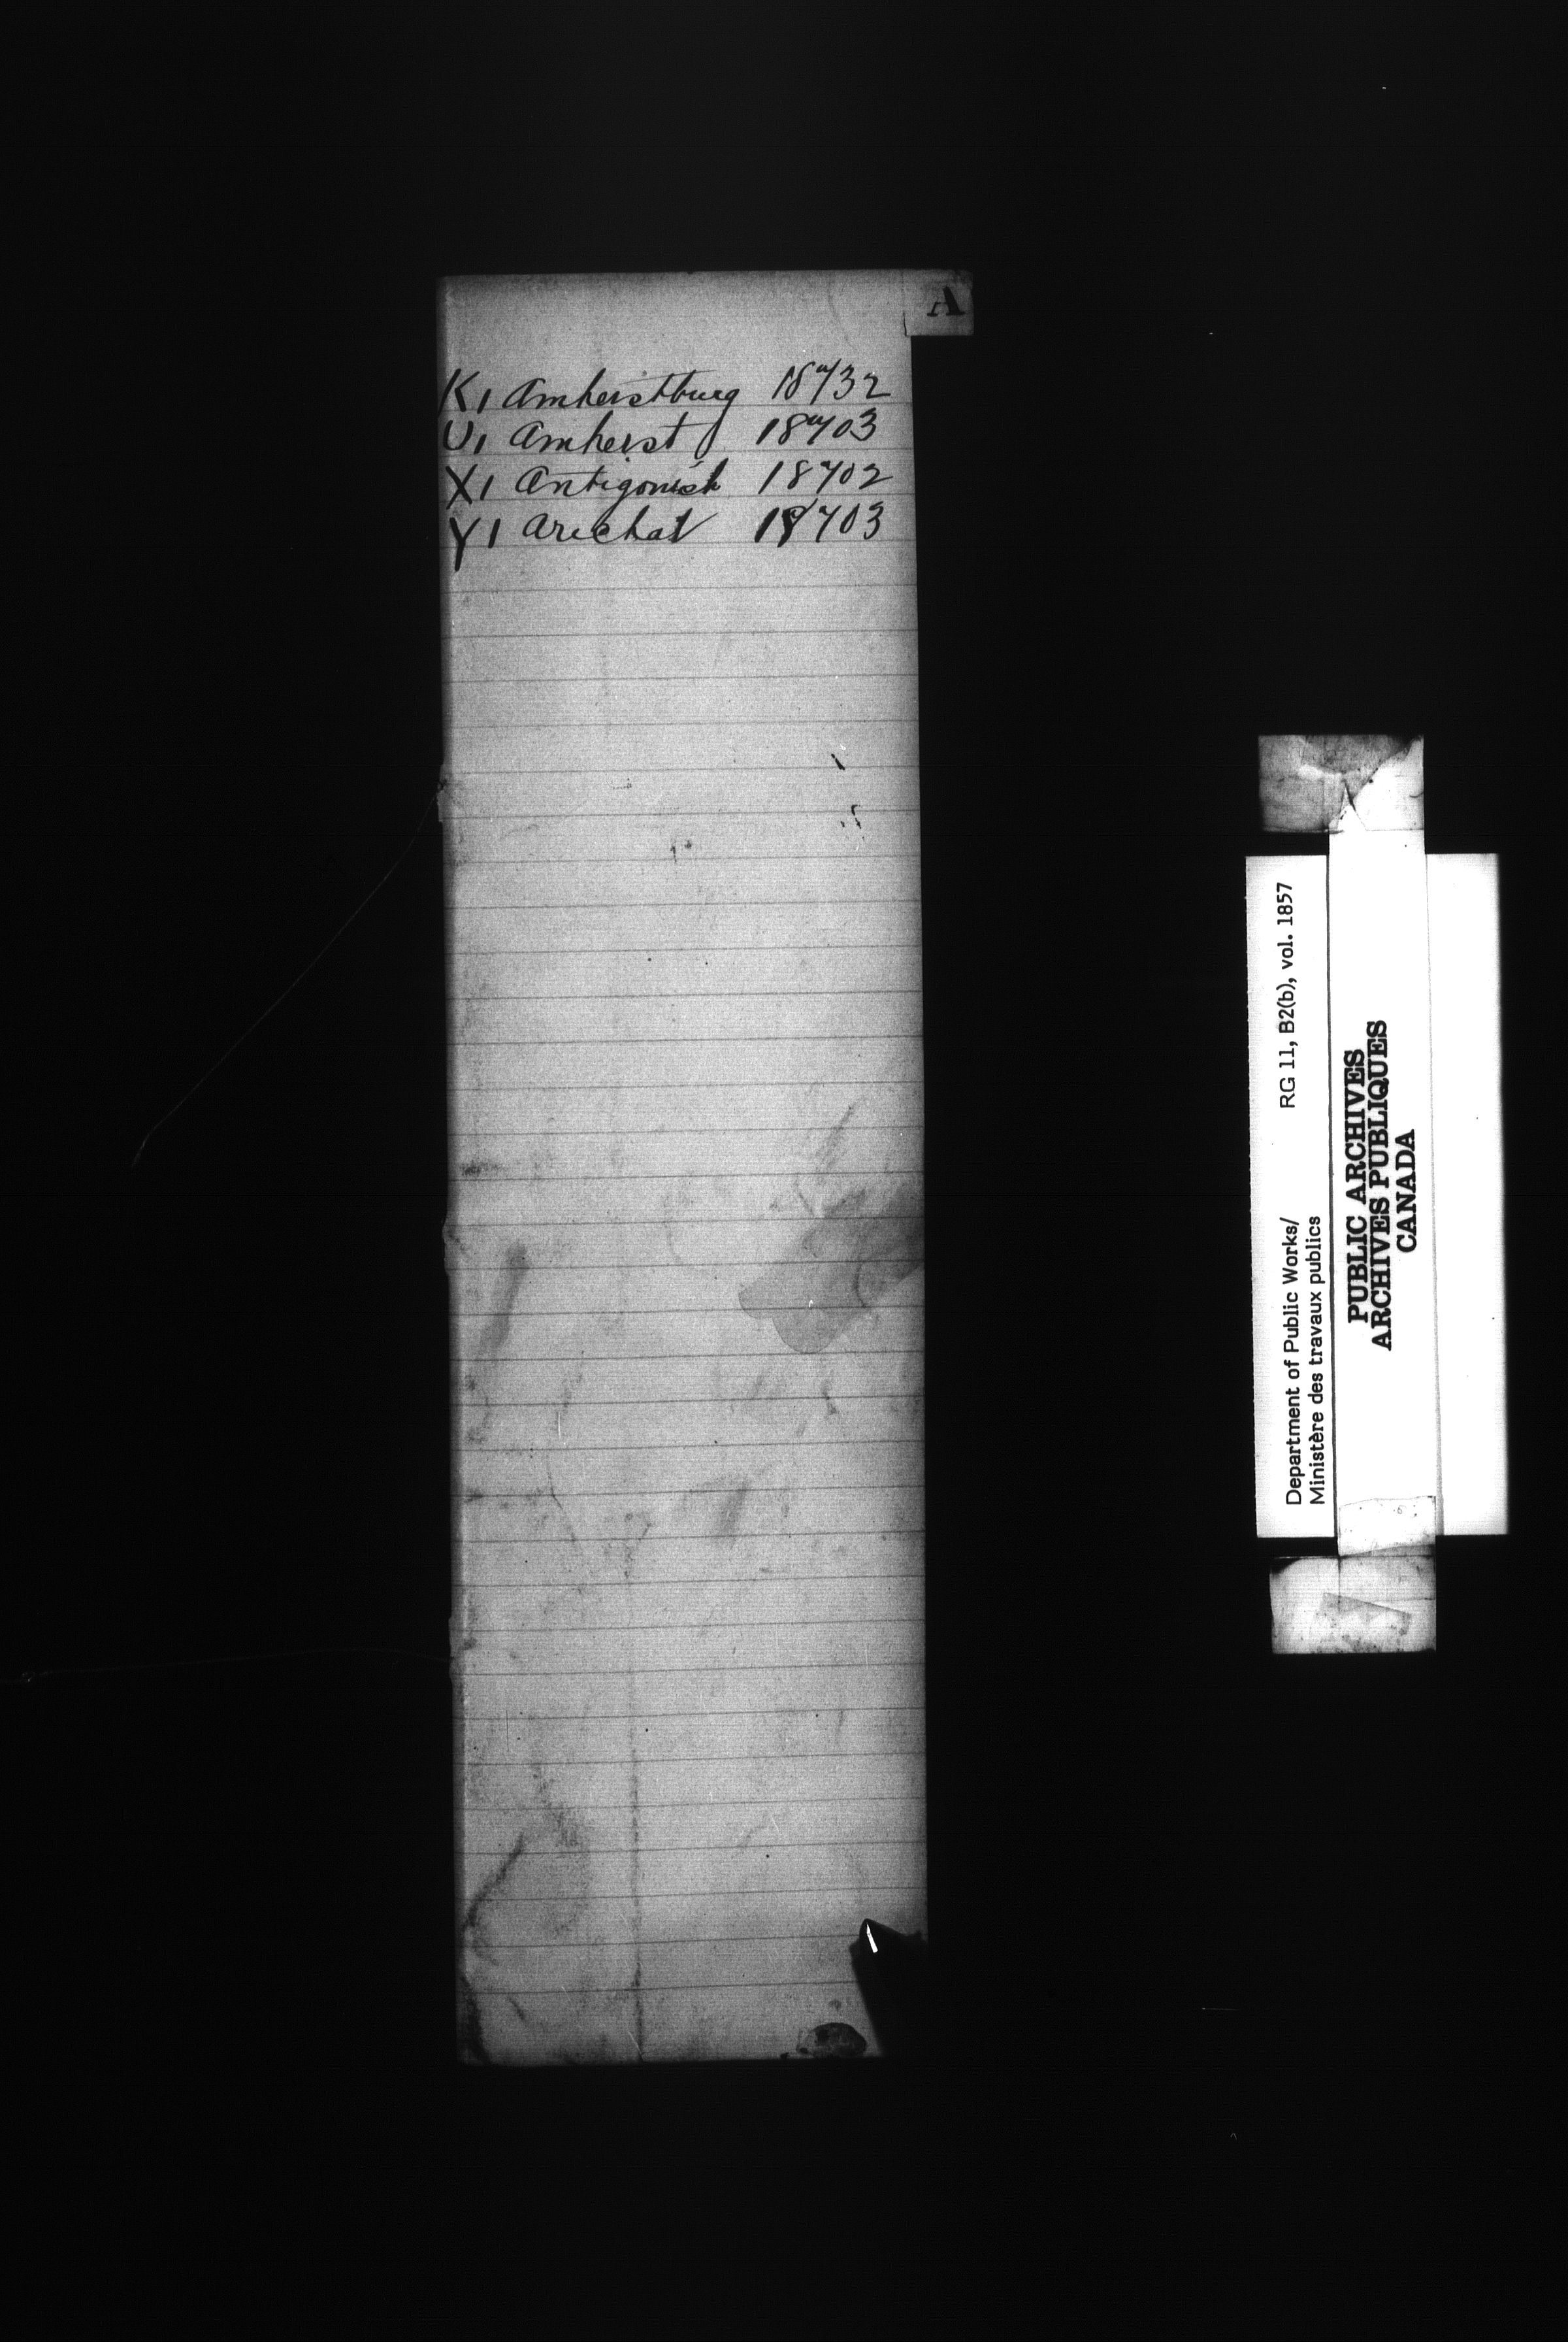 A
K1 Amherstburg 18732
U1 Amherst 18703
X1 Antigonish 18702
Y1 Arichat 18703
Department of Public Works/ RG 11, B2(b), vol. 1857
Ministère des travaux publics
PUBLIC ARCHIVES
ARCHIVES PUBLIQUES
CANADA